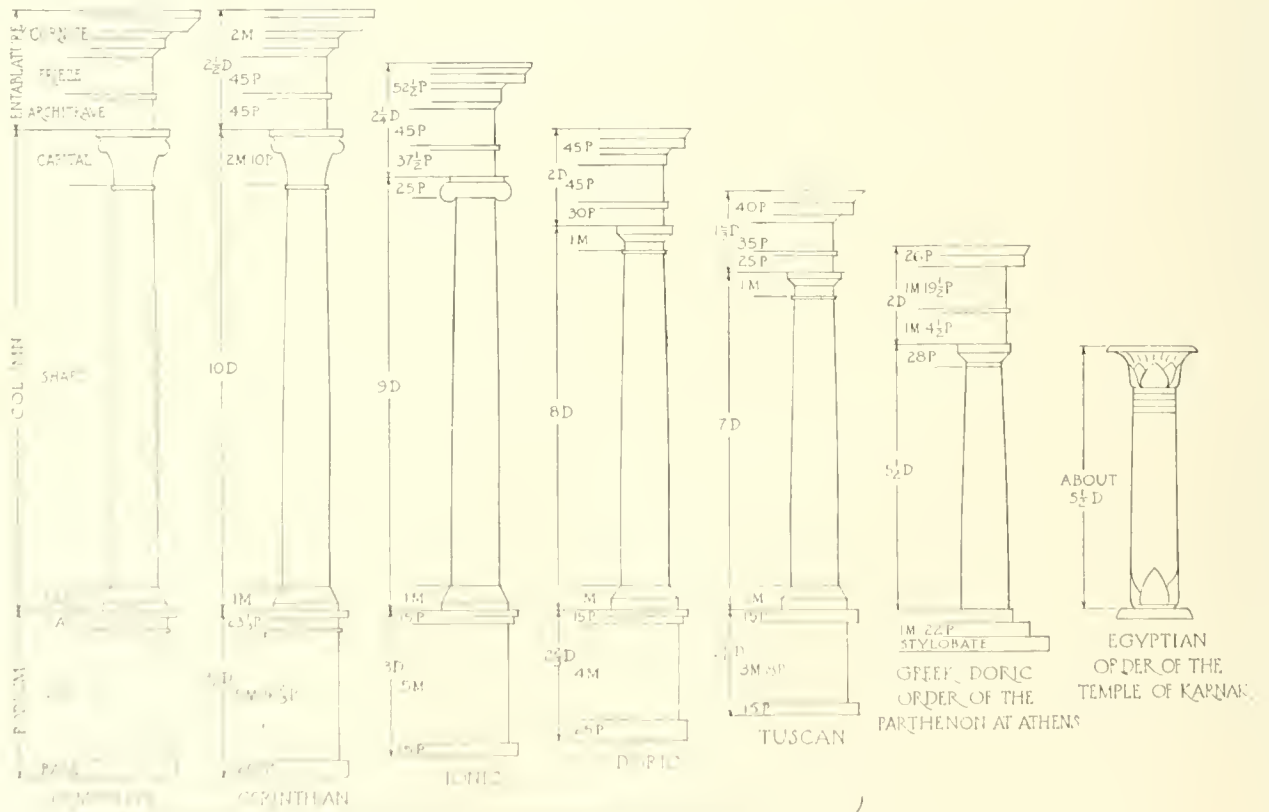 ENTABLATURE
CORNICE
FRIEZE
ARCHITRAVE
CAPITAL
COLUMN
SHAFT
2M
2½D
45P
45P
2M 10P
10D
1M
CORINTHIAN
52½P
2¼D
45P
37½P
25P
9D
1M
15P
3D
IONIC
45P
2D
45P
30P
1M
8D
M
15P
4M
25P
DORIC
40P
35P
25P
1M
7D
M
15P
3M 8P
15P
TUSCAN
26P
1M 19½P
2D
1M 4½P
28P
5½D
1M 22P
STYLOBATE
GREEK DORIC
ORDER OF THE
PARTHENON AT ATHENS
ABOUT
5½D
EGYPTIAN
ORDER OF THE
TEMPLE OF KARNAK